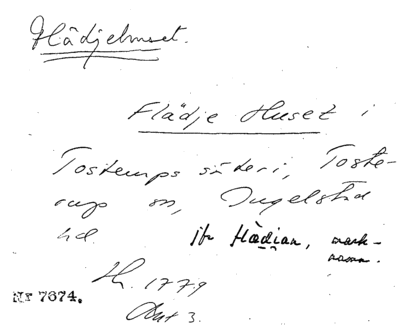 Flädjehuset.
Flädje Huset i
Tostemps säteri, Toste-
rup sn, Ingelstad
hd. jfr Flädian, mark-
namn.
Lh. 1779
Akt 3.
Nr 7674.